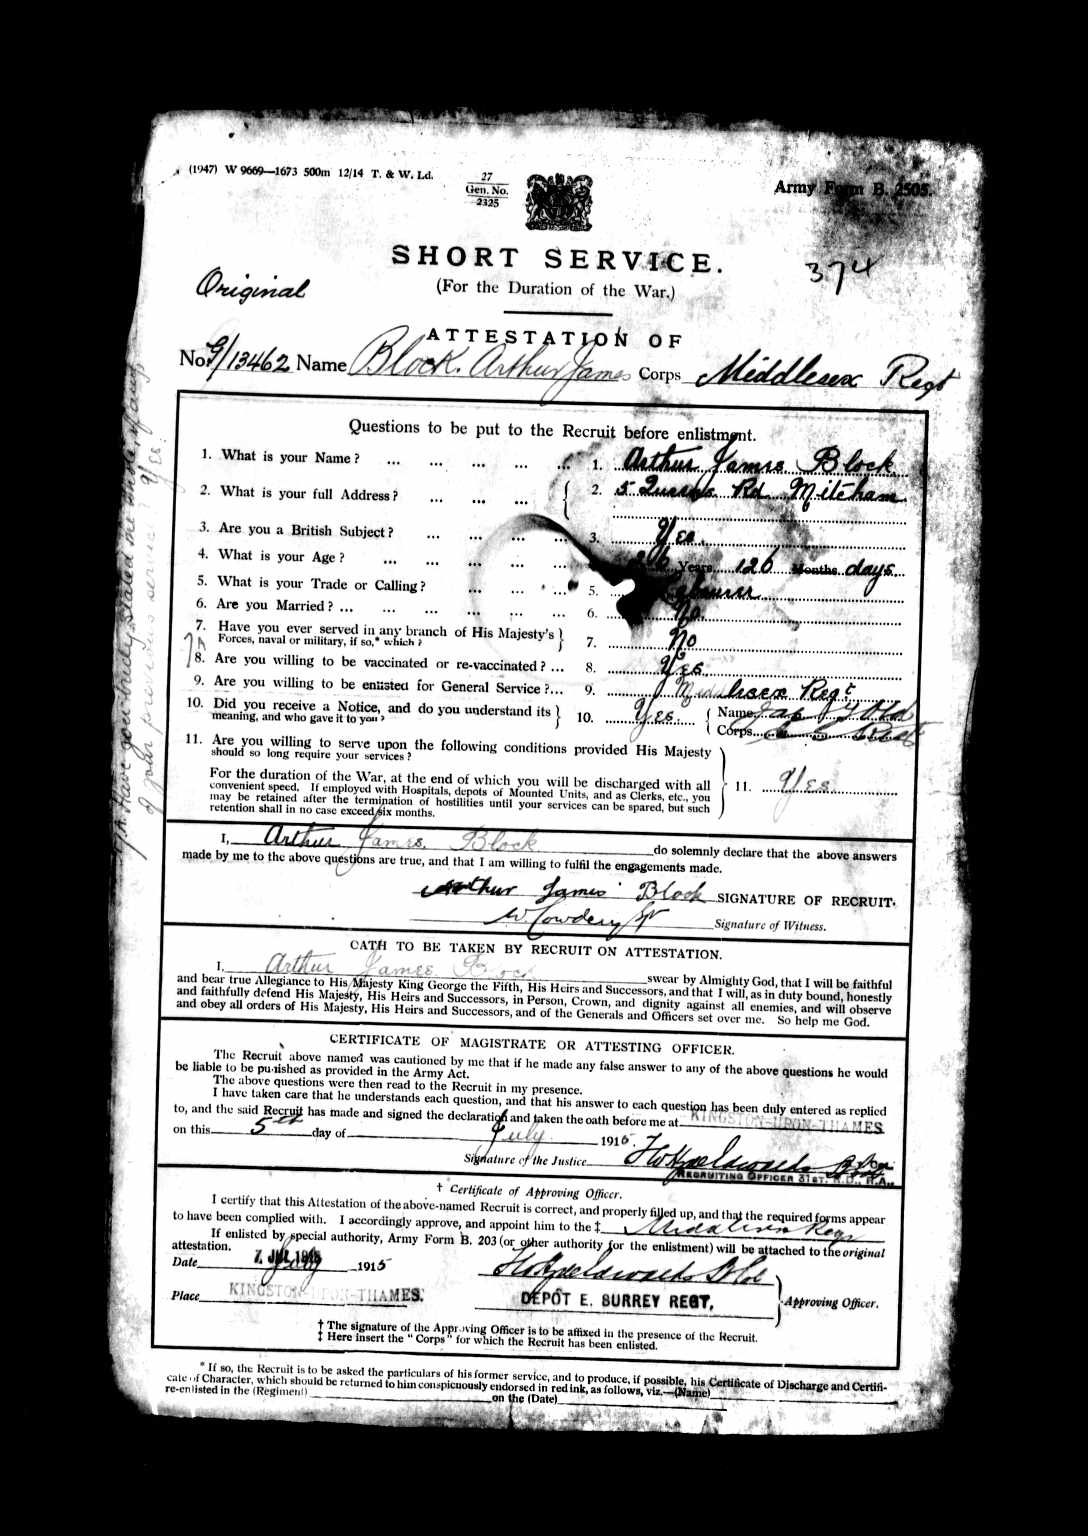 (1947) W 9669—1673 500m 12/14 T. & W. Ld.
27
Gen. No.
2325
Army Form B. 2505.
SHORT SERVICE.
374
Original
(For the Duration of the War.)
ATTESTATION OF
No. G/13462 Name Block. Arthur James Corps Middlesex Regt
Questions to be put to the Recruit before enlistment.
1. What is your Name? ... ... ... ... ... 1. Arthur James Block
2. What is your full Address? ... ... ... 2. 5 Rd Mitcham
3. Are you a British Subject? ... ... ... ... 3. Yes.
4. What is your Age? ... ... ... ... ... Years 126 Months days
5. What is your Trade or Calling? ... ... ... 5.
6. Are you Married? ... ... ... ... ... ... 6. No.
7. Have you ever served in any branch of His Majesty's
Forces, naval or military, if so,* which? 7. No
8. Are you willing to be vaccinated or re-vaccinated? ... 8. Yes
9. Are you willing to be enlisted for General Service?... 9. Middlesex Regt
10. Did you receive a Notice, and do you understand its
meaning, and who gave it to you? 10. Yes. Name
Corps
11. Are you willing to serve upon the following conditions provided His Majesty
should so long require your services?
For the duration of the War, at the end of which you will be discharged with all
convenient speed. If employed with Hospitals, depots of Mounted Units, and as Clerks, etc., you
may be retained after the termination of hostilities until your services can be spared, but such
retention shall in no case exceed six months.
11. Yes
I, Arthur James Block do solemnly declare that the above answers
made by me to the above questions are true, and that I am willing to fulfil the engagements made.
Arthur James Block SIGNATURE OF RECRUIT.
W. Cowdery Signature of Witness.
OATH TO BE TAKEN BY RECRUIT ON ATTESTATION.
I, Arthur James Block swear by Almighty God, that I will be faithful
and bear true Allegiance to His Majesty King George the Fifth, His Heirs and Successors, and that I will, as in duty bound, honestly
and faithfully defend His Majesty, His Heirs and Successors, in Person, Crown, and dignity against all enemies, and will observe
and obey all orders of His Majesty, His Heirs and Successors, and of the Generals and Officers set over me. So help me God.
CERTIFICATE OF MAGISTRATE OR ATTESTING OFFICER.
The Recruit above named was cautioned by me that if he made any false answer to any of the above questions he would
be liable to be punished as provided in the Army Act.
The above questions were then read to the Recruit in my presence.
I have taken care that he understands each question, and that his answer to each question has been duly entered as replied
to, and the said Recruit has made and signed the declaration and taken the oath before me at KINGSTON-UPON-THAMES
on this 5th day of July 1915.
Signature of the Justice
RECRUITING OFFICER 31ST. R.D., R.A.,
† Certificate of Approving Officer.
I certify that this Attestation of the above-named Recruit is correct, and properly filled up, and that the required forms appear
to have been complied with. I accordingly approve, and appoint him to the ‡ Middlesex Regt
If enlisted by special authority, Army Form B. 203 (or other authority for the enlistment) will be attached to the original
attestation.
Date 7 JUL 1915 July 1915
Place KINGSTON-UPON-THAMES. DEPÔT E. SURREY REGT, Approving Officer.
† The signature of the Approving Officer is to be affixed in the presence of the Recruit.
‡ Here insert the "Corps" for which the Recruit has been enlisted.
* If so, the Recruit is to be asked the particulars of his former service, and to produce, if possible, his Certificate of Discharge and Certifi-
cate of Character, which should be returned to him conspicuously endorsed in red ink, as follows, viz.—(Name)
re-enlisted in the (Regiment) on the (Date)